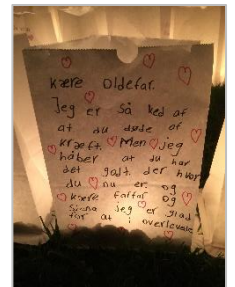 kære oldefar.
Jeg er så ked af
at du døde af
kræft. Men jeg
håber at du har
det godt der hvor
du nu er. og
kære farfar og
jeg er glad
for at i overlevede